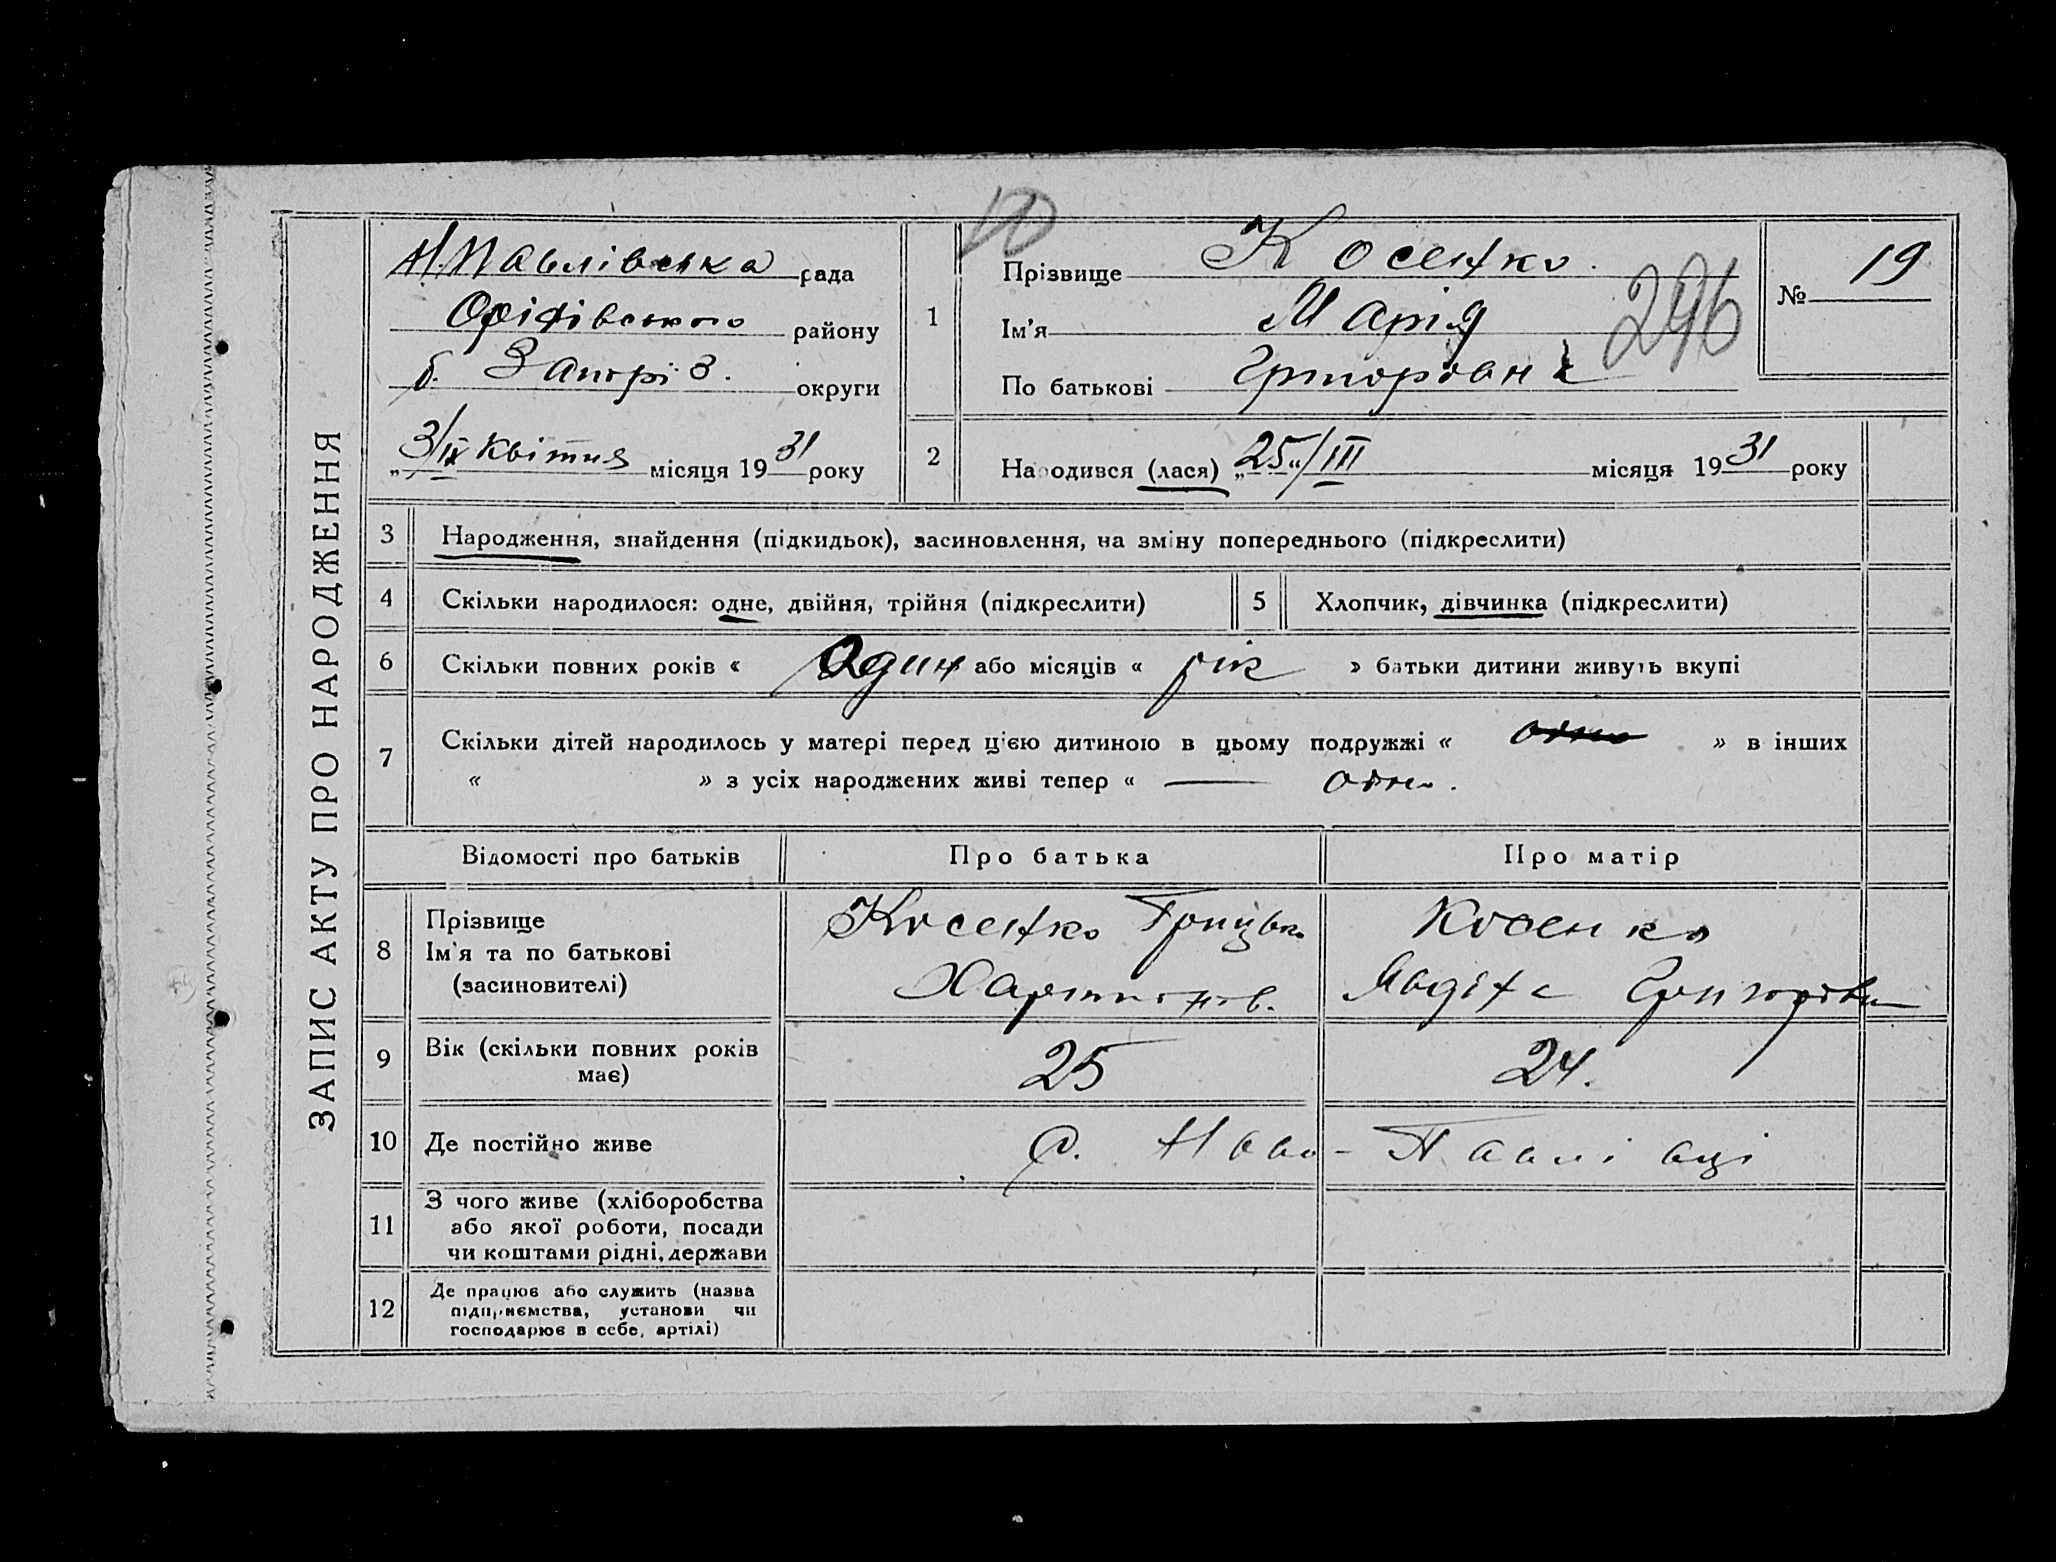 ЗАПИС АКТУ ПРО НАРОДЖЕННЯ
Н.Павлівська рада
Оріхівського району
б. Запоріз. округи
„3/IV квітня місяця 1931 року
10
1 Прізвище Косенко
Ім'я Марія
По батькові Григоровна
296
№ 19
2 Народився (лася) „25"/III місяця 1931 року
3 Народження, знайдення (підкидьок), засиновлення, на зміну попереднього (підкреслити)
4 Скільки народилося: одне, двійня, трійня (підкреслити) 5 Хлопчик, дівчинка (підкреслити)
6 Скільки повних років « Один або місяців « рік » батьки дитини живуть вкупі
7 Скільки дітей народилось у матері перед цією дитиною в цьому подружжі « одно » в інших
« » з усіх народжених живі тепер « — одно.
Відомості про батьків Про батька Про матір
8 Прізвище
Ім'я та по батькові
(засиновителі)
Косенко Грицько
Харитонов.
Косенко
Явдіха Григорівна
9 Вік (скільки повних років
має)
25 24.
10 Де постійно живе с. Ново-Павлівці
11 З чого живе (хліборобства
або якої роботи, посади
чи коштами рідні, держави
12 Де працює або служить (назва
підприємства, установи чи
господарює в себе, артілі)